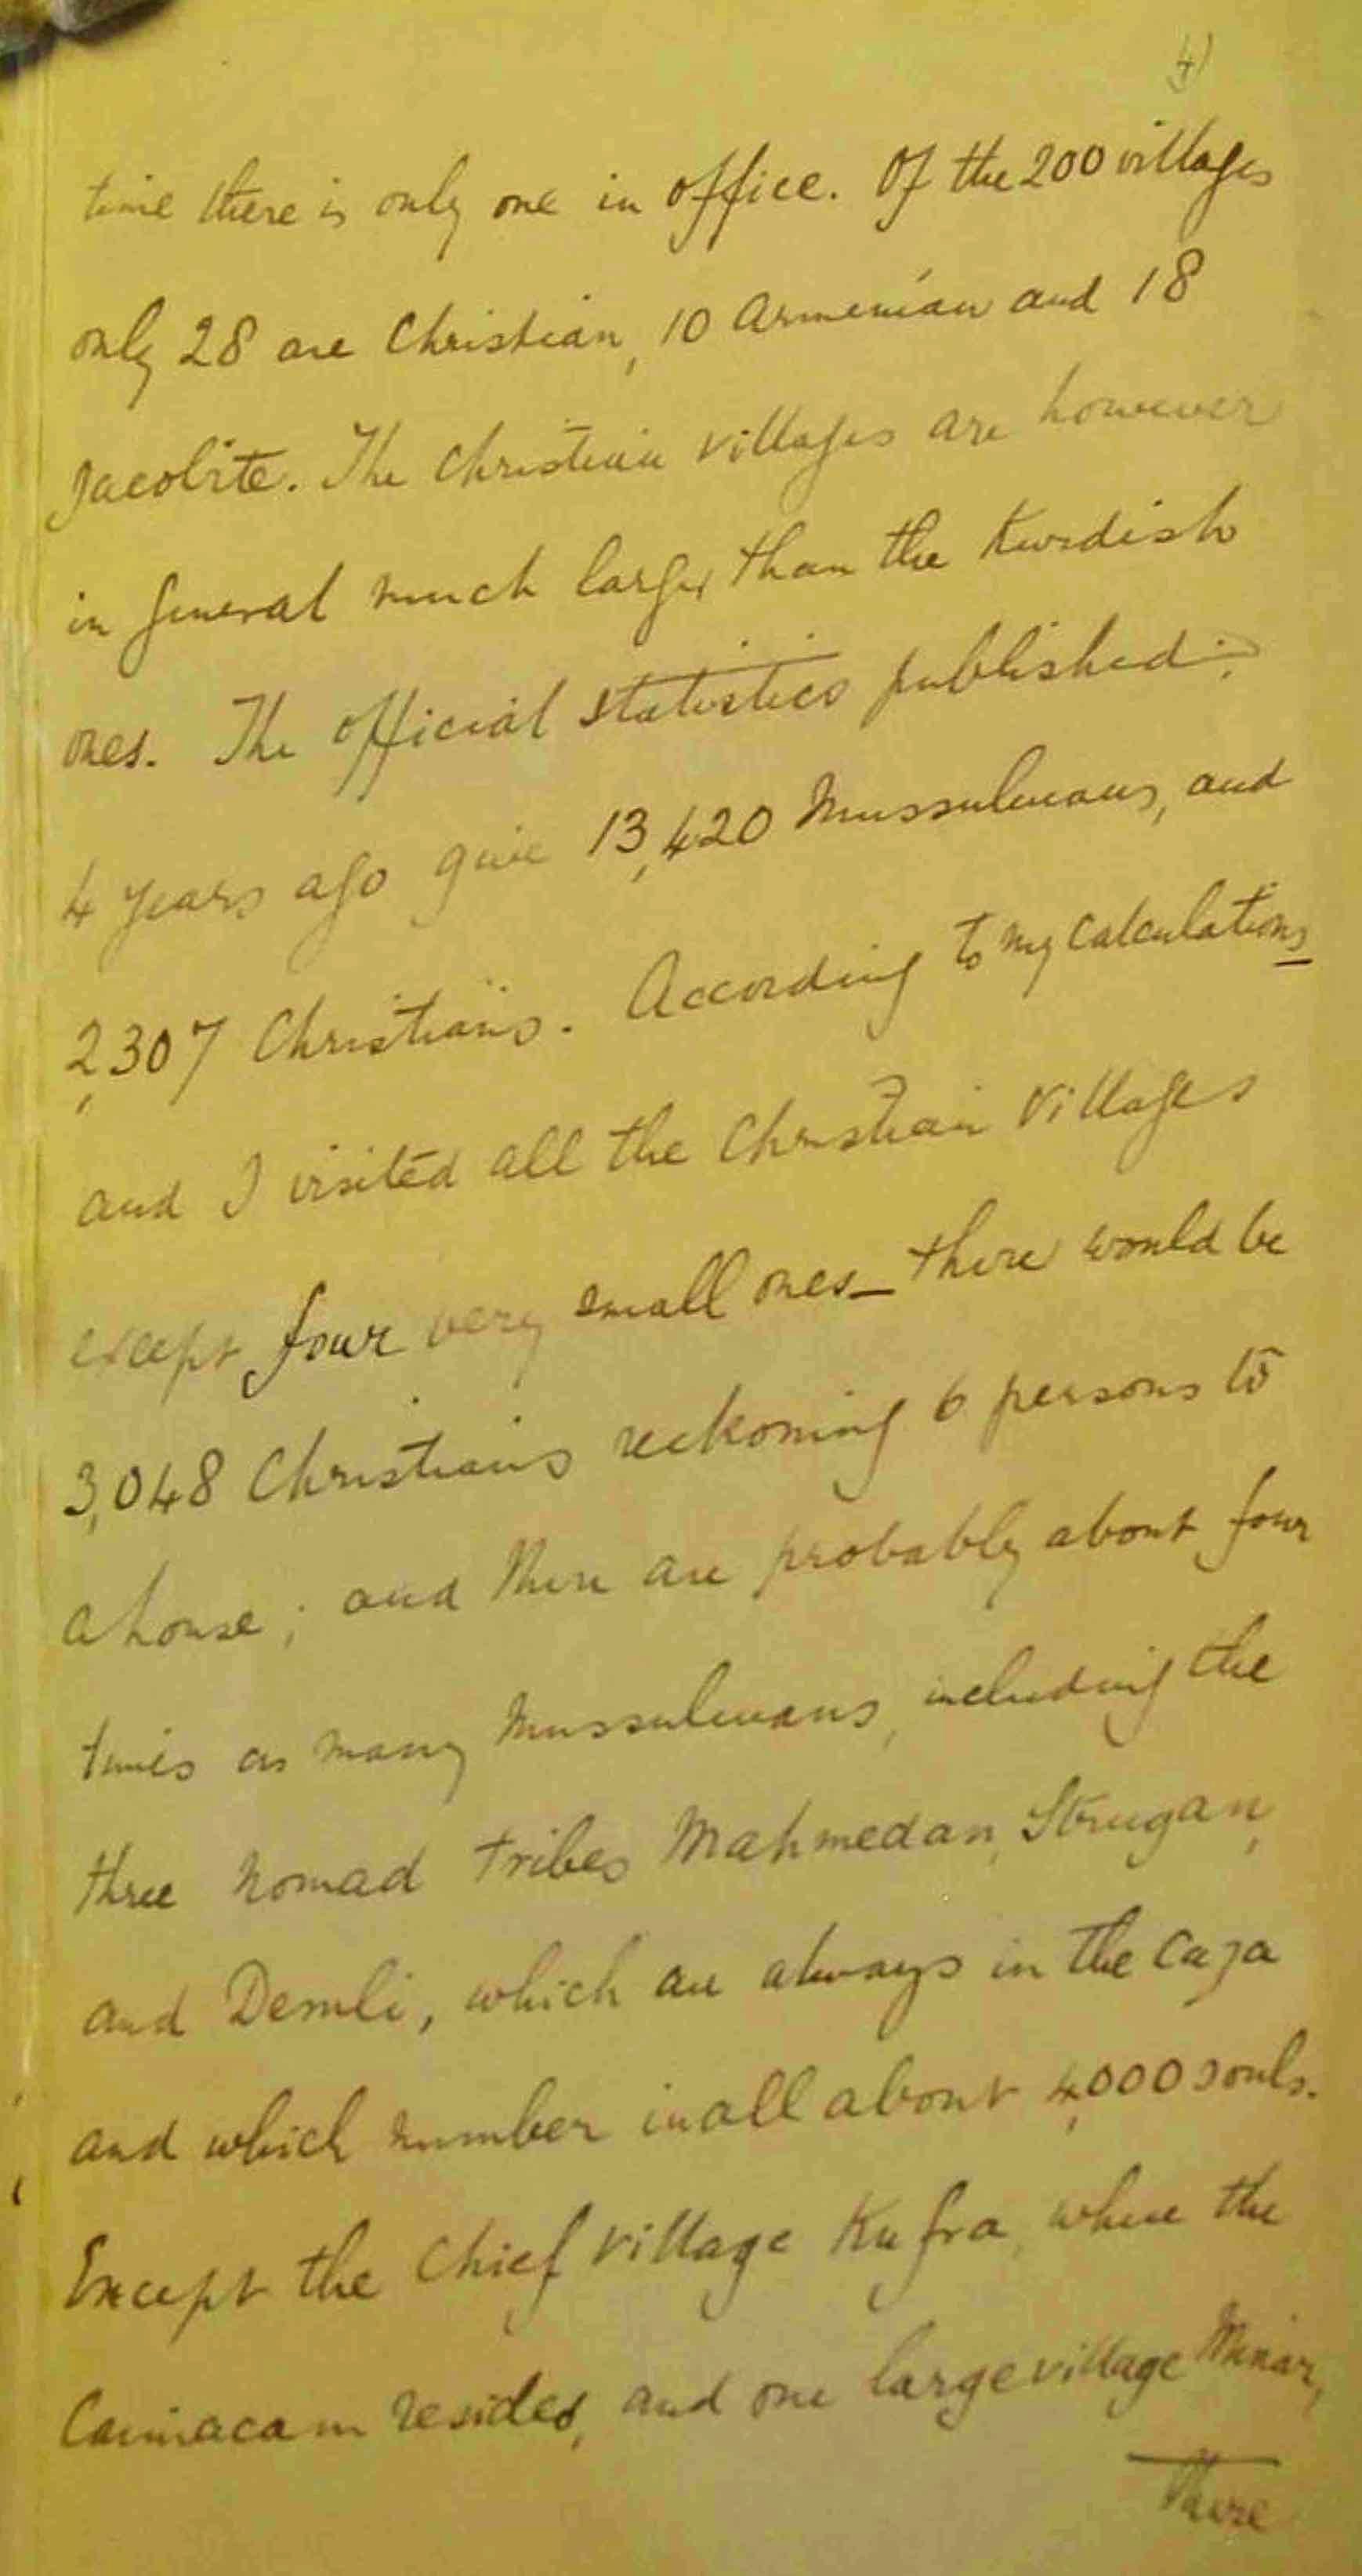 4)
time there is only one in office. Of the 200 villages
only 28 are Christian, 10 Armenian and 18
Jacobite. The Christian villages are however
in general much larger than the Kurdish
ones. The official statistics published
4 years ago give 13,420 Mussulmans, and
2,307 Christians. According to my calculations
and I visited all the Christian villages
except four very small ones – there would be
3,048 Christians reckoning 6 persons to
a house; and there are probably about four
times as many Mussulmans, including the
three nomad tribes Mahmedan, Strugan,
and Demli, which are always in the caza
and which number in all about 4,000 souls.
Except the Chief village Kufra, where the
Caimacam resides, and one large village Minar,
There